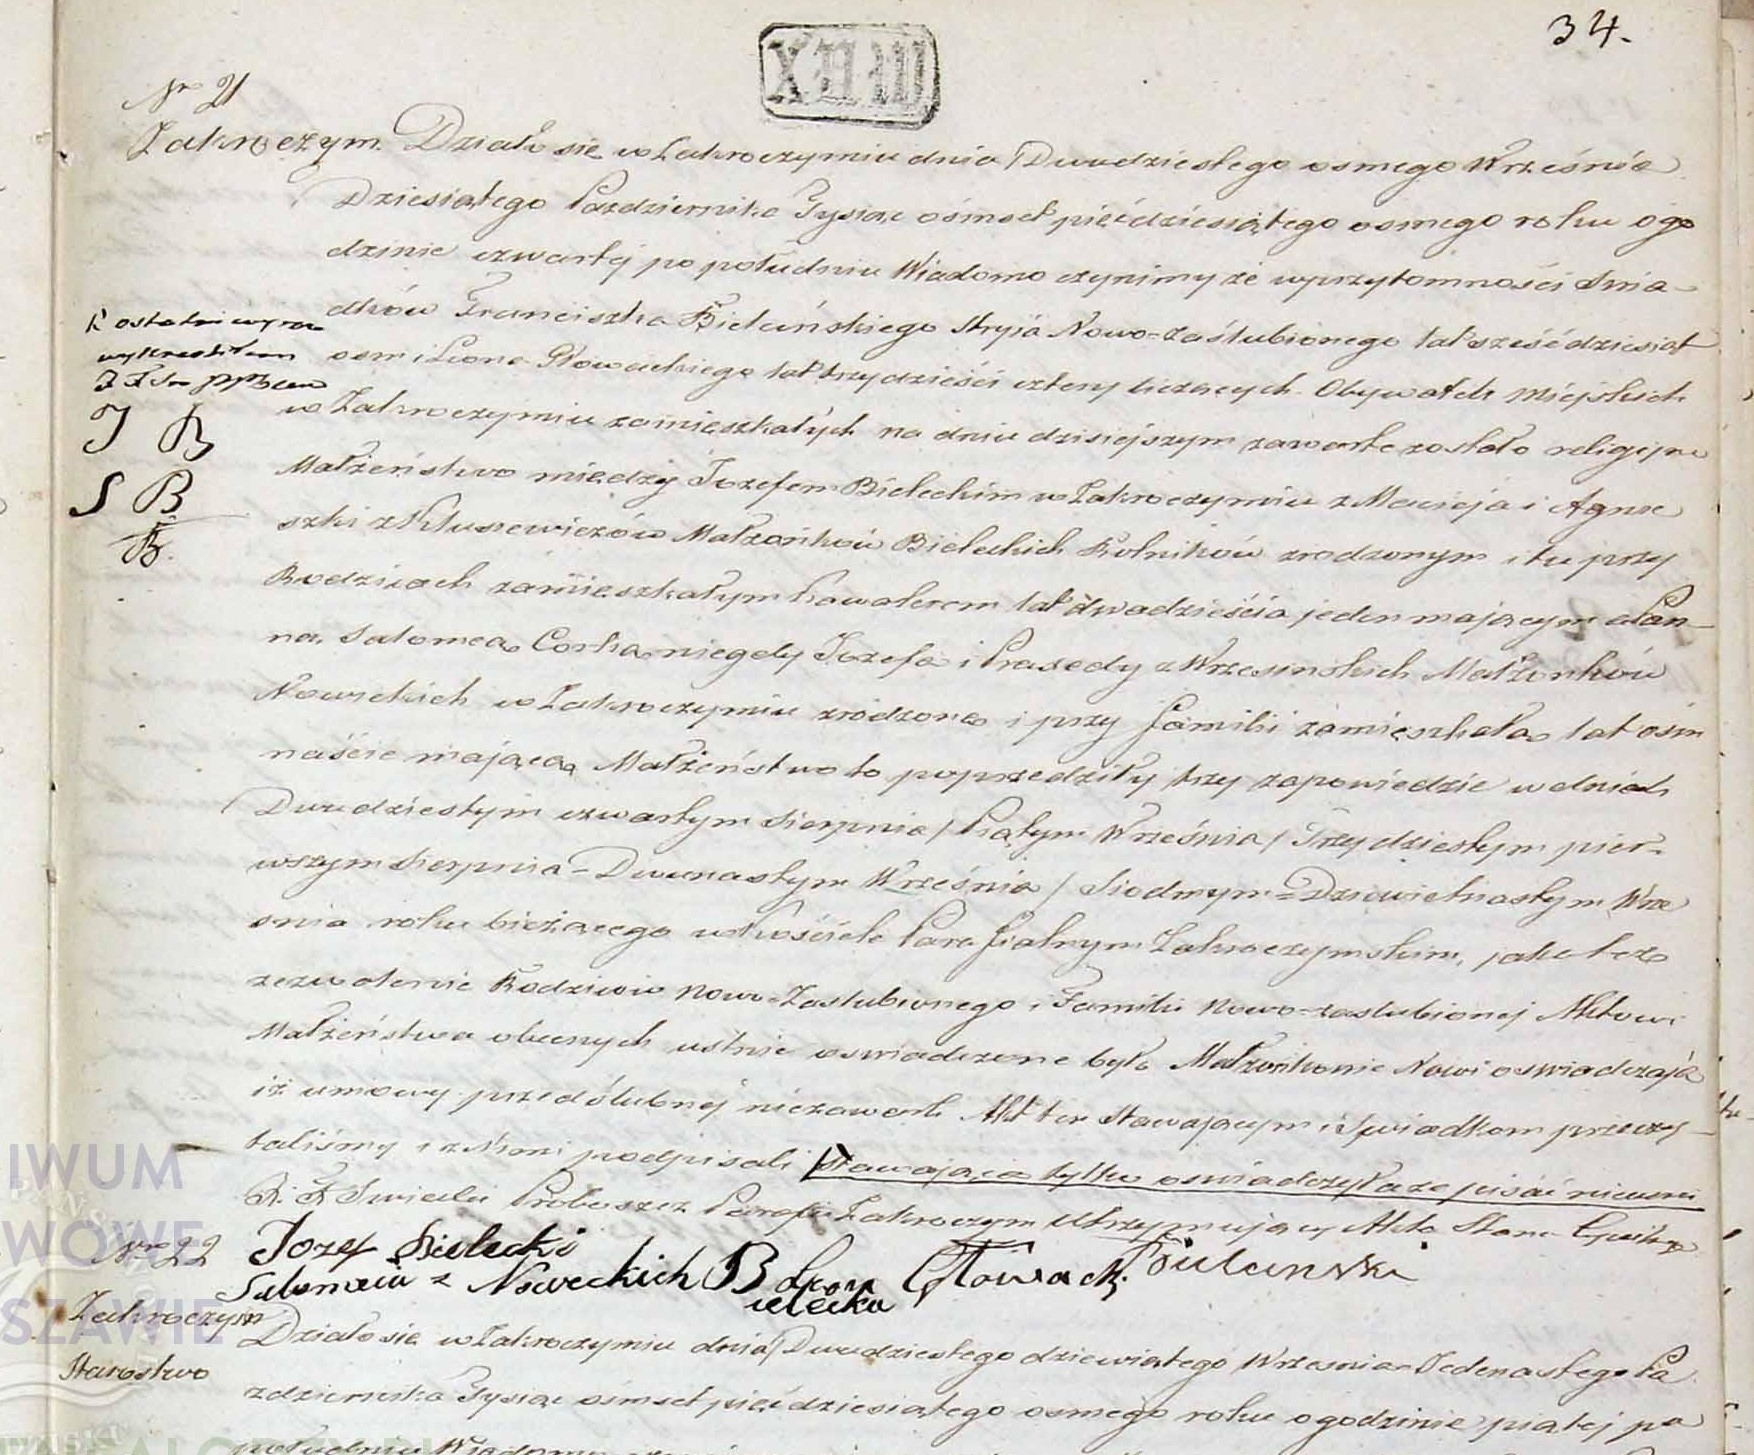 34.
Nr 21
Zakroczym. Działo się w Zakroczymiu dnia Dwudziestego osmego Września
Dziesiątego Pazdziernika Tysiąc ośmset pięćdziesiątego osmego roku o go
dzinie czwartej po południu Wiadomo czynimy że w przytomności Swia-
dków Franciszka Bielańskiego Stryja Nowo-zaślubionego lat sześćdziesiąt
osm i Leona Głowackiego lat trzydzieści cztery liczących Obywateli Miejskich
w Zakroczymiu zamięszkałych na dniu dzisiejszym zawarte zostało religijne
Małżeństwo między Jozefem Bieleckim w Zakroczymiu z Macieja i Agnie
szki z Klusiewiczów Małżonków Bieleckich Rolników zrodzonym i tu przy
Rodzicach zamięszkałym kawalerem lat dwadzieścia jeden mającym a Pan-
ną Salomeą Corką niegdy Jozefa i Praxedy z Wrzesinskich Małżonków
Nowickich w Zakroczymiu zrodzoną i przy familii zamięszkałą lat ośm
naście mającą Małżeństwo to poprzedziły trzy zapowiedzie w dniach
Dwudziestym czwartym Sierpnia / Piątym Września / Trzydziestym pier-
wszym Sierpnia - Dwunastym Września / Siodmym - Dziewietnastym Wrze
snia roku bieżącego w Kościele Parafialnym Zakroczymskim, jako też
zezwolenie Rodziców Nowo-Zaslubionego i Familii Nowo-zaslubionej Aktowi
Małżeństwa obecnych ustnie oswiadczone było Małżonkowie Nowi oswiadczają
iż umowy przedślubnej niezawarli Akt ten Stawającym i Swiadkom przeczy-
taliśmy i z Niemi podpisali Stawająca tylko oswiadczyła że pisać nieumi
X. Proboszcz Parafii Zakroczym Utrzymujący Akta Stanu Cywilne
Jozef Bielecki
Salomeia z Noweckich B
ielecka
Leon Głowacki
K ostatni wyraz
wykreśliłem
J B
S B
Nro 22
Zakroczym
Starostwo
Działo się w Zakroczymiu dnia Dwudziestego dziewiątego Wrzesnia Jedenastego Pa
zdziernika Tysiąc ośmset pięćdziesiątego osmego roku o godzinie piątej po
południu Wiadomo
IWUM
WOWE
SZAWIE